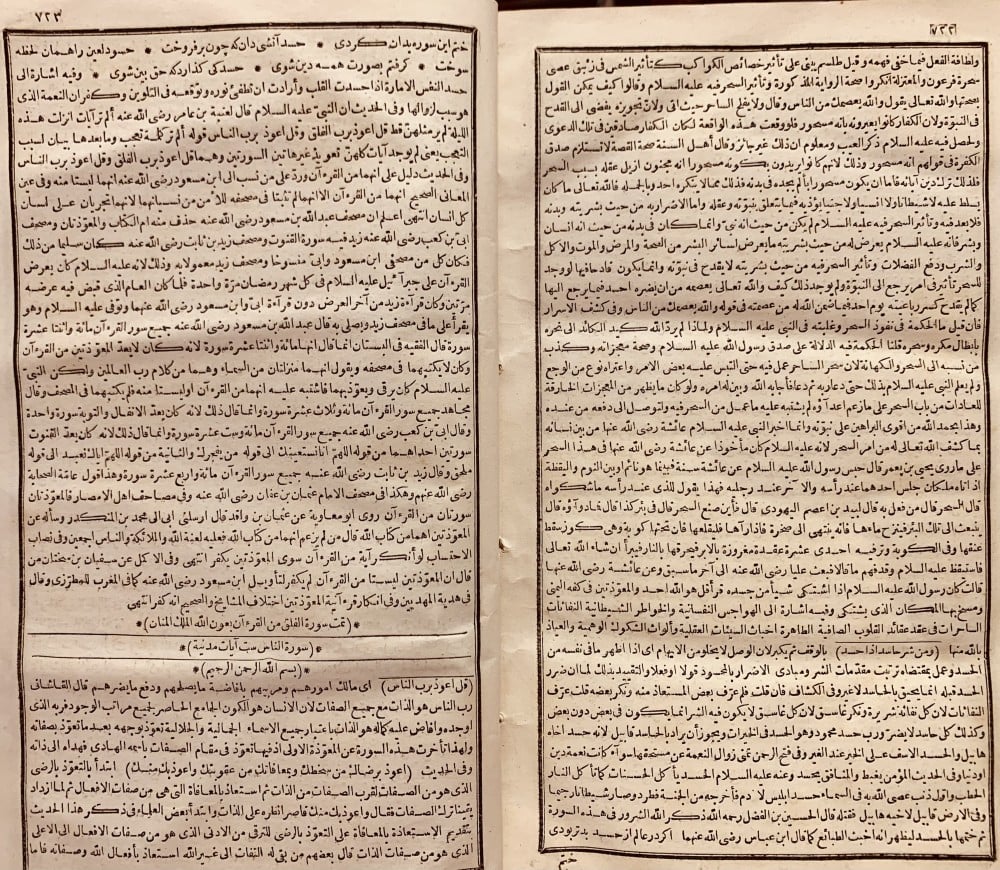 ٧٢٢
ولطافة الفعل فيما خفى فهمه وقيل طلسم يبنى على تأثير خصائص الكواكب كتأثير الشمس فى زئبق عصى
سحرة فرعون والمعتزلة أنكروا صحة الرواية المذكورة وتأثير السحر فيه عليه السلام وقالوا كيف يمكن القول
بصحتها والله تعالى يقول والله يعصمك من الناس وقال ولا يفلح الساحر حيث اتى ولان تجويزه يفضى الى القدح
فى النبوّة ولان الكفار كانوا يعيرونه بانه مسحور فلو وقعت هذه الواقعة لكان الكفار صادقين فى تلك الدعوى
ولحصل فيه عليه السلام ذكر العيب ومعلوم ان ذلك غير جائز وقال أهل السنة صحة القصة لا تستلزم صدق
الكفرة فى قولهم انه مسحور وذلك لانهم كانوا يريدون بكونه مسحورا انه مجنون ازيل عقله بسبب السحر
فلذلك ترك دين آبائه فاما ان يكون مسحورا بألم يجده فى بدنه فذلك مما لا ينكره احد وبالجملة فالله تعالى ما كان
يسلط عليه لا شيطانا ولا انسيا ولا جنيا يؤذيه فيما يتعلق بنبوّته وعقله واما الاضرار به من حيث بشريته وبدنه
فلا بعد فيه وتأثير السحر فيه عليه السلام لم يكن من حيث انه نبىّ وانما كان فى بدنه من حيث انه انسان
وبشر فانه عليه السلام يعرض له من حيث بشريته ما يعرض لسائر البشر من الصحة والمرض والموت والاكل
والشرب ودفع الفضلات وتأثير السحر فيه من حيث بشريته لا يقدح فى نبوّته وانما يكون قادحا فيها لو وجد
للسحر تأثير فى امر يرجع الى النبوّة ولم يوجد ذلك كيف والله تعالى يعصمه من ان يضره احد فيما يرجع اليها
كما لم يقدح كسر رباعيته يوم احد فيما ضمن الله له من عصمته فى قوله والله يعصمك من الناس وفى كشف الاسرار
فان قيل ما الحكمة فى نفوذ السحر وغلبته فى النبى عليه السلام ولماذا لم يردّ الله كيد الكائد الى نحره
بابطال مكره وسحره قلنا الحكمة فيه الدلالة على صدق رسول الله عليه السلام وصحة معجزاته وكذب
من نسبه الى السحر والكهانة لان سحر الساحر عمل فيه حتى التبس عليه بعض الامر واعتراه نوع من الوجع
ولم يعلم النبى عليه السلام بذلك حتى دعا ربه ثم دعا فاجابه الله وبين له امره ولو كان ما يظهر من المعجزات الخارقة
للعادات من باب السحر على ما زعم اعدآؤه لم يشتبه عليه ما عمل من السحر فيه ولتوصل الى دفعه من عنده
وهذا بحمد الله من اقوى البراهين على نبوّته وانما اخبر النبى عليه السلام عائشة رضى الله عنها من بين نسائه
بما كشف الله تعالى له من امر السحر لانه عليه السلام كان مأخوذا عن عائشة رضى الله عنها فى هذا السحر
على ما روى يحيى بن يعمر قال حبس رسول الله عليه السلام عن عائشة سنة فبينما هو نائم او بين النوم واليقظة
اذ اتاه ملكان جلس احدهما عند رأسه والآخر عند رجليه فهذا يقول للذى عند رأسه ما شكواه
قال السحر قال من فعل به قال لبيد بن اعصم اليهودى قال فأين صنع السحر قال فى بئر كذا قال فما دوآؤه قال
يبعث الى تلك البئر فينزح ماءها فانه ينتهى الى صخرة فاذا رآها فليقلعها فان تحتها كوبة وهى كوز سقط
عنقها وفى الكوبة وتر فيه احدى عشرة عقدة مغروزة بالابر فيحرقها بالنار فيبرأ ان شاء الله تعالى
فاستيقظ عليه السلام وقد فهم ما قالا فبعث عليا رضى الله عنه الى آخر ما سبق وعن عائشة رضى الله عنها
قالت كان رسول الله عليه السلام اذا اشتكى شيأ من جسده قرأ قل هو الله احد والمعوّذتين فى كفه اليمنى
ومسح بها المكان الذى يشتكى وفيه اشارة الى الهواجس النفسانية والخواطر الشيطانية النفاثات
الساحرات فى عقد عقائد القلوب الصافية الطاهرة اخباث السيئات العقلية وألواث الشكوك الوهمية والعياذ
بالله منها (ومن شر حاسد اذا حسد) بالوقف ثم يكبر لان الوصل لا يخلو من الايهام اى اذا اظهر ما فى نفسه من
الحسد وعمل بمقتضاه بترتيب مقدّمات الشر ومبادى الاضرار بالمحسود قولا او فعلا والتقييد بذلك لما ان ضرر
الحسد قبله انما يحيق بالحاسد لا غير وفى الكشاف فان قلت فلم عرّف بعض المستعاذ منه ونكر بعضه قلت عرّف
النفاثات لان كل نفاثة شريرة ونكر غاسق لان كل غاسق لا يكون فيه الشر انما يكون فى بعض دون بعض
وكذلك كل حاسد لا يضر ورب حسد محمود وهو الحسد فى الخيرات ويجوز أن يراد بالحاسد قابيل لانه حسد اخاه
هابيل والحسد الاسف على الخير عند الغير وفى فتح الرحمن تمنى زوال النعمة عن مستحقها سوآء كانت نعمة دين
او دنيا وفى الحديث المؤمن يغبط والمنافق يحسد وعنه عليه السلام الحسد يأكل الحسنات كما تأكل النار
الحطب واوّل ذنب عصى الله به فى السماء حسد ابليس لآدم فأخرجه من الجنة فطرد وصار شيطانا رجيما
وفى الارض قابيل لاخيه هابيل فقتله قال الحسين بن الفضل رحمه الله ذكر الله الشرور فى هذه السورة
ثم ختمها بالحسد ليظهر انه أخبث الطبائع كما قال ابن عباس رضى الله عنهما اكر در عالم از حسد بدتر بودى
ختم
٧٢٣
ختم اين سوره بدان كردى * حسد آتشى دان كه چون بر فروخت * حسود لعين را همان لحظه
سوخت * كرفتم بصورت همه دين شوى * حسد كى كذارد كه حق بين شوى * وفيه اشارة الى
حسد النفس الامارة اذا حسدت القلب وأرادت ان تطفئ نوره وتوقعه فى التلوين وكفران النعمة الذى
هو سبب لزوالها وفى الحديث ان النبىّ عليه السلام قال لعقبة بن عامر رضى الله عنه ألم تر آيات انزلت هذه
الليلة لم ير مثلهنّ قط قل اعوذ برب الفلق وقل اعوذ برب الناس قوله ألم تر كلمة تعجب وما بعدها بيان لسبب
التعجب يعنى لم يوجد آيات كلهنّ تعويذ غير هاتين السورتين وهما قل اعوذ برب الفلق وقل اعوذ برب الناس
وفى الحديث دليل على انهما من القرءآن وردّ على من نسب الى ابن مسعود رضى الله عنه انهما ليستا منه وفى عين
المعانى الصحيح انهما من القرءآن الا انهما لم تثبتا فى مصحفه للأمن من نسيانهما لانهما تجريان على لسان
كل انسان انتهى اعلم ان مصحف عبد الله بن مسعود رضى الله عنه حذف منه ام الكتاب والمعوّذتان ومصحف
ابىّ بن كعب رضى الله عنه زيد فيه سورة القنوت ومصحف زيد بن ثابت رضى الله عنه كان سليما من ذلك
فكان كل من مصحفى ابن مسعود وابىّ منسوخا ومصحف زيد معمولا به وذلك لانه عليه السلام كان يعرض
القرءآن على جبرآئيل عليه السلام فى كل شهر رمضان مرّة واحدة فلما كان العام الذى قبض فيه عرضه
مرّتين وكان قرآءة زيد من آخر العرض دون قرآءة ابىّ وابن مسعود رضى الله عنهما وتوفى عليه السلام وهو
يقرأ على ما فى مصحف زيد ويصلى به قال عبد الله بن مسعود رضى الله عنه جميع سور القرءآن مائة واثنتا عشرة
سورة قال الفقيه فى البستان انما قال انها مائة واثنتا عشرة سورة لانه كان لا يعدّ المعوّذتين من القرءآن
وكان لا يكتبهما فى مصحفه ويقول انهما منزلتان من السماء وهما من كلام رب العالمين ولكن النبىّ
عليه السلام كان يرقى ويعوّذ بهما فاشتبه عليه انهما من القرءآن او ليستا منه فلم يكتبهما فى المصحف وقال
مجاهد جميع سور القرءآن مائة وثلاث عشرة سورة وانما قال ذلك لانه كان يعدّ الانفال والتوبة سورة واحدة
وقال ابىّ بن كعب رضى الله عنه جميع سور القرءآن مائة وست عشرة سورة وانما قال ذلك لانه كان يعدّ القنوت
سورتين احداهما من قوله اللهمّ انا نستعينك الى قوله من يفجرك والثانية من قوله اللهمّ اياك نعبد الى قوله
ملحق وقال زيد بن ثابت رضى الله عنه جميع سور القرءآن مائة واربع عشرة سورة وهذا قول عامّة الصحابة
رضى الله عنهم وهكذا فى مصحف الامام عثمان بن عفان رضى الله عنه وفى مصاحف اهل الامصار فالمعوّذتان
سورتان من القرءآن روى ابو معاوية عن عثمان بن واقد قال ارسلنى ابى الى محمد بن المنكدر وسأله عن
المعوّذتين اهما من كتاب الله قال من لم يزعم انهما من كتاب الله فعليه لعنة الله والملائكة والناس اجمعين وفى نصاب
الاحتساب لو أنكر آية من القرءآن سوى المعوّذتين يكفر انتهى وفى الاكمل عن سفيان بن سختان من
قال ان المعوّذتين ليستا من القرءآن لم يكفر لتأويل ابن مسعود رضى الله عنه كما فى المغرب للمطرّزى وقال
فى هدية المهديين وفى انكار قرءآنية المعوّذتين اختلاف المشايخ والصحيح انه كفر انتهى
*(تمت سورة الفلق من القرءآن بعون الله الملك المنان)*
*(سورة الناس ست آيات مدنية)*
*(بسم الله الرحمن الرحيم)*
(قل اعوذ برب الناس) اى مالك امورهم ومربيهم بافاضة ما يصلحهم ودفع ما يضرهم قال القاشانى
رب الناس هو الذات مع جميع الصفات لان الانسان هو الكون الجامع الحاصر لجميع مراتب الوجود فربه الذى
اوجده وافاض عليه كماله هو الذات باعتبار جميع الاسماء الجمالية والجلالية تعوّذ بوجهه بعد ما تعوّذ بصفاته
ولهذا تأخرت هذه السورة عن المعوّذة الاولى اذ فيها تعوّذ فى مقام الصفات باسمه الهادى فهداه الى ذاته
وفى الحديث (اعوذ برضاك من سخطك وبمعافاتك من عقوبتك واعوذ بك منك) ابتدأ بالتعوّذ بالرضى
الذى هو من الصفات لقرب الصفات من الذات ثم استعاذ بالمعافاة التى هى من صفات الافعال ثم لما ازداد
يقينا ترك الصفات فقال واعوذ بك منك قاصرا نظره على الذات وابتدأ بعض العلماء فى ذكر هذا الحديث
بتقديم الاستعاذة بالمعافاة على التعوّذ بالرضى للترقى من الادنى الذى هو من صفات الافعال الى الاعلى
الذى هو من صفات الذات قال بعضهم من بقى له التفات الى غير الله استعاذ بأفعال الله وصفاته فاما